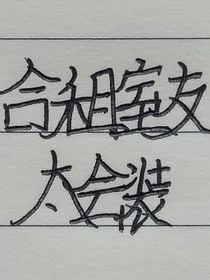 合租室友
太会装